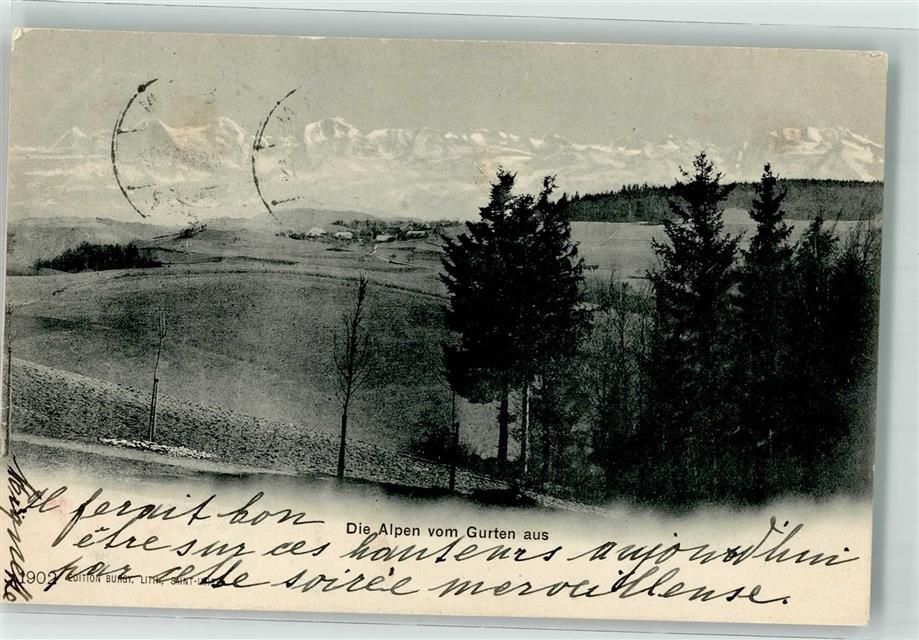 Die Alpen vom Gurten aus
Il ferait bon
être sur ces hauteurs aujourd'hui
par cette soirée merveilleuse.
1902 EDITION BURGY, LITH., SAINT-IMIER